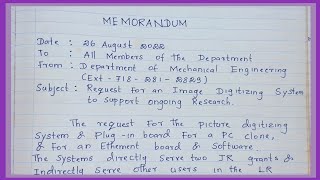 MEMORANDUM
Date : 26 August 2022
To : All Members of the Department
From : Department of Mechanical Engineering
(Ext - 718 - 281 - 2829)
Subject : Request for an Image Digitizing System
to support ongoing Research.
The request for the picture digitizing
System & Plug-in board for a PC clone,
& For an Ethernent board & Software.
The Systems directly Serve two JR grants &
Indirectly Serve other users in the LR